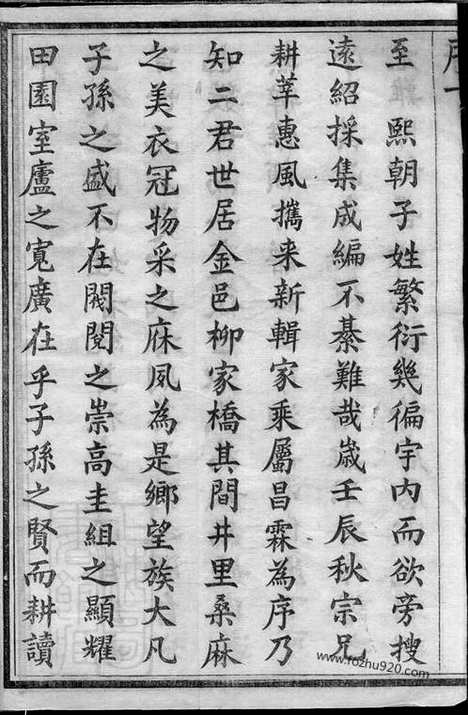 至　熙朝子姓繁衍幾徧宇內而欲旁搜
遠紹採集成編不綦難哉歲壬辰秋宗兄
耕莘惠風攜来新輯家乘屬昌霖為序乃
知二君世居金邑柳家橋其間井里桑麻
之美衣冠物采之庥夙為是鄉望族大凡
子孫之盛不在閥閱之崇高圭組之顯耀
田園室廬之寬廣在乎子孫之賢而耕讀
www.fozhu920.com